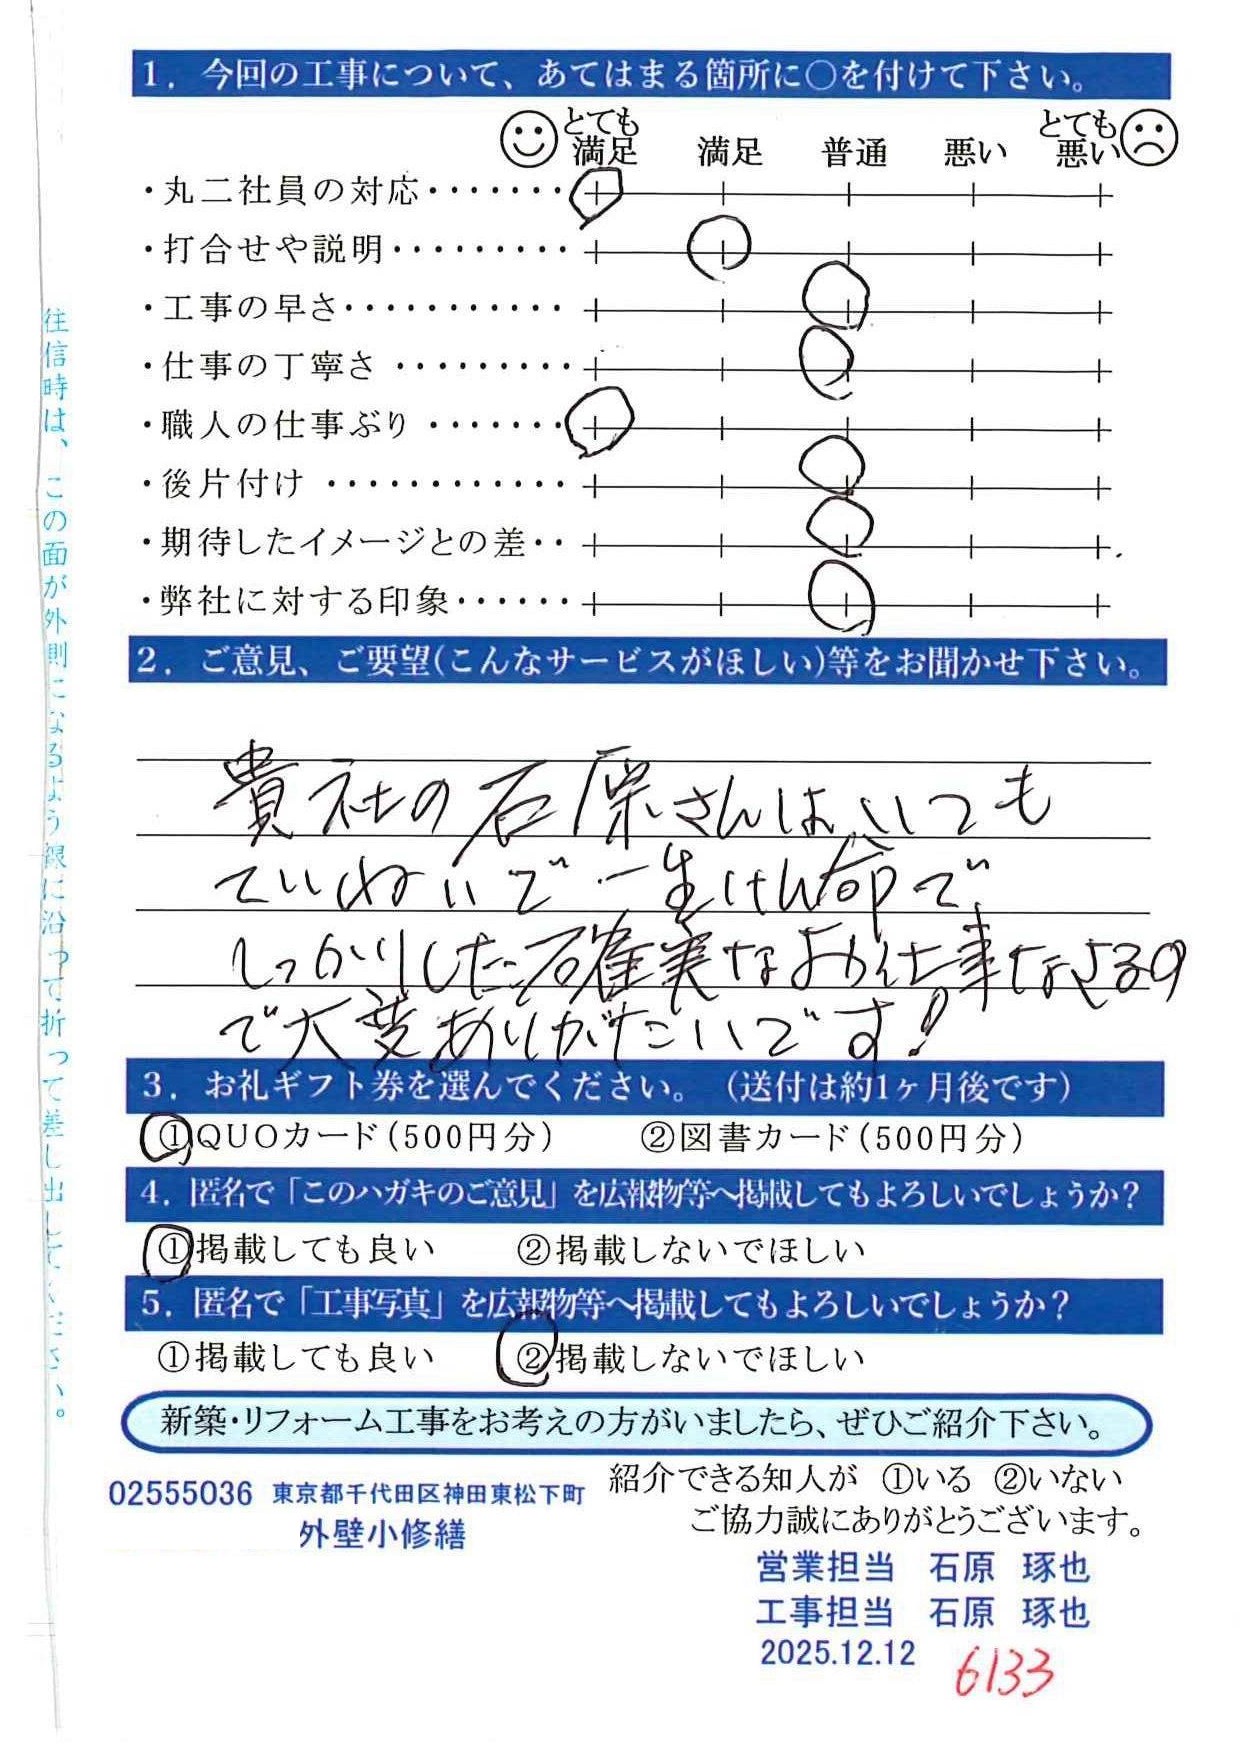 1. 今回の工事について、あてはまる箇所に○を付けて下さい。
とても満足 満足 普通 悪い とても悪い
・丸二社員の対応・・・・・・・
・打合せや説明・・・・・・・・・
・工事の早さ・・・・・・・・・・・
・仕事の丁寧さ・・・・・・・・・
・職人の仕事ぶり・・・・・・・
・後片付け・・・・・・・・・・・・
・期待したイメージとの差・・
・弊社に対する印象・・・・・・
2. ご意見、ご要望(こんなサービスがほしい)等をお聞かせ下さい。
貴社の石原さんは、いつも
ていねいで一生けん命で、
しっかりした確実なお仕事なさるの
で大変ありがたいです!
3. お礼ギフト券を選んでください。(送付は約1ヶ月後です)
①QUOカード(500円分) ②図書カード(500円分)
4. 匿名で「このハガキのご意見」を広報物等へ掲載してもよろしいでしょうか?
①掲載しても良い ②掲載しないでほしい
5. 匿名で「工事写真」を広報物等へ掲載してもよろしいでしょうか?
①掲載しても良い ②掲載しないでほしい
新築・リフォーム工事をお考えの方がいましたら、ぜひご紹介下さい。
紹介できる知人が ①いる ②いない
ご協力誠にありがとうございます。
02555036 東京都千代田区神田東松下町
外壁小修繕
営業担当 石原 琢也
工事担当 石原 琢也
2025.12.12
6133
往信時は、この面が外側になるよう線に沿って折って差し出してください。